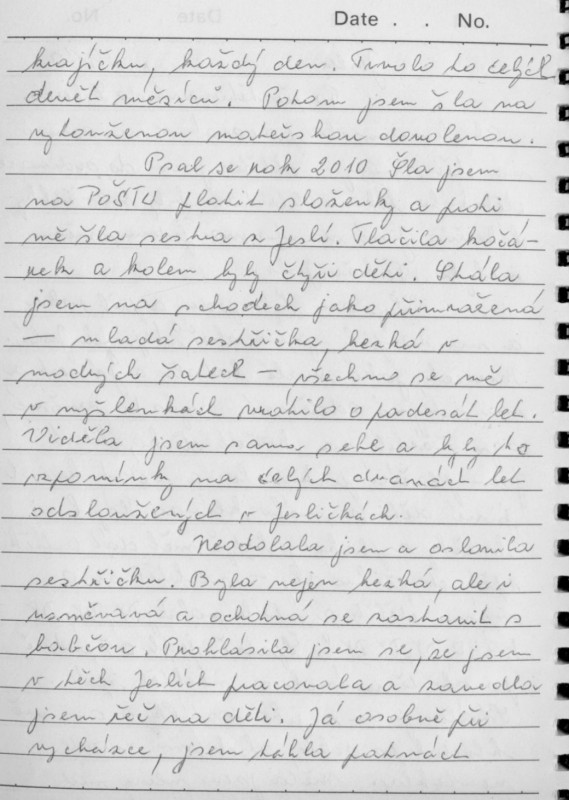 Date . . No.
krajíčku, každý den. Trvalo to celých
devět měsíců. Potom jsem šla na
vytouženou mateřskou dovolenou.
Psal se rok 2010 Šla jsem
na POŠTU platit složenky a proti
mě šla sestra z Jeslí. Tlačila kočá-
rek a kolem byly čtyři děti. Stála
jsem na schodech jako přimražená
— mladá sestřička, hezká v
modrých šatech – všechno se mě
v myšlenkách vrátilo o padesát let.
Viděla jsem sama sebe a byly to
vzpomínky na celých dvanáct let
odsloužených v Jesličkách.
Neodolala jsem a oslovila
sestřičku. Byla nejen hezká, ale i
usměvavá a ochotná se zastavit s
babčou. Prohlásila jsem se, že jsem
v těch Jeslích pracovala a zavedla
jsem řeč na děti. Já osobně při
vycházce, jsem táhla patnáct